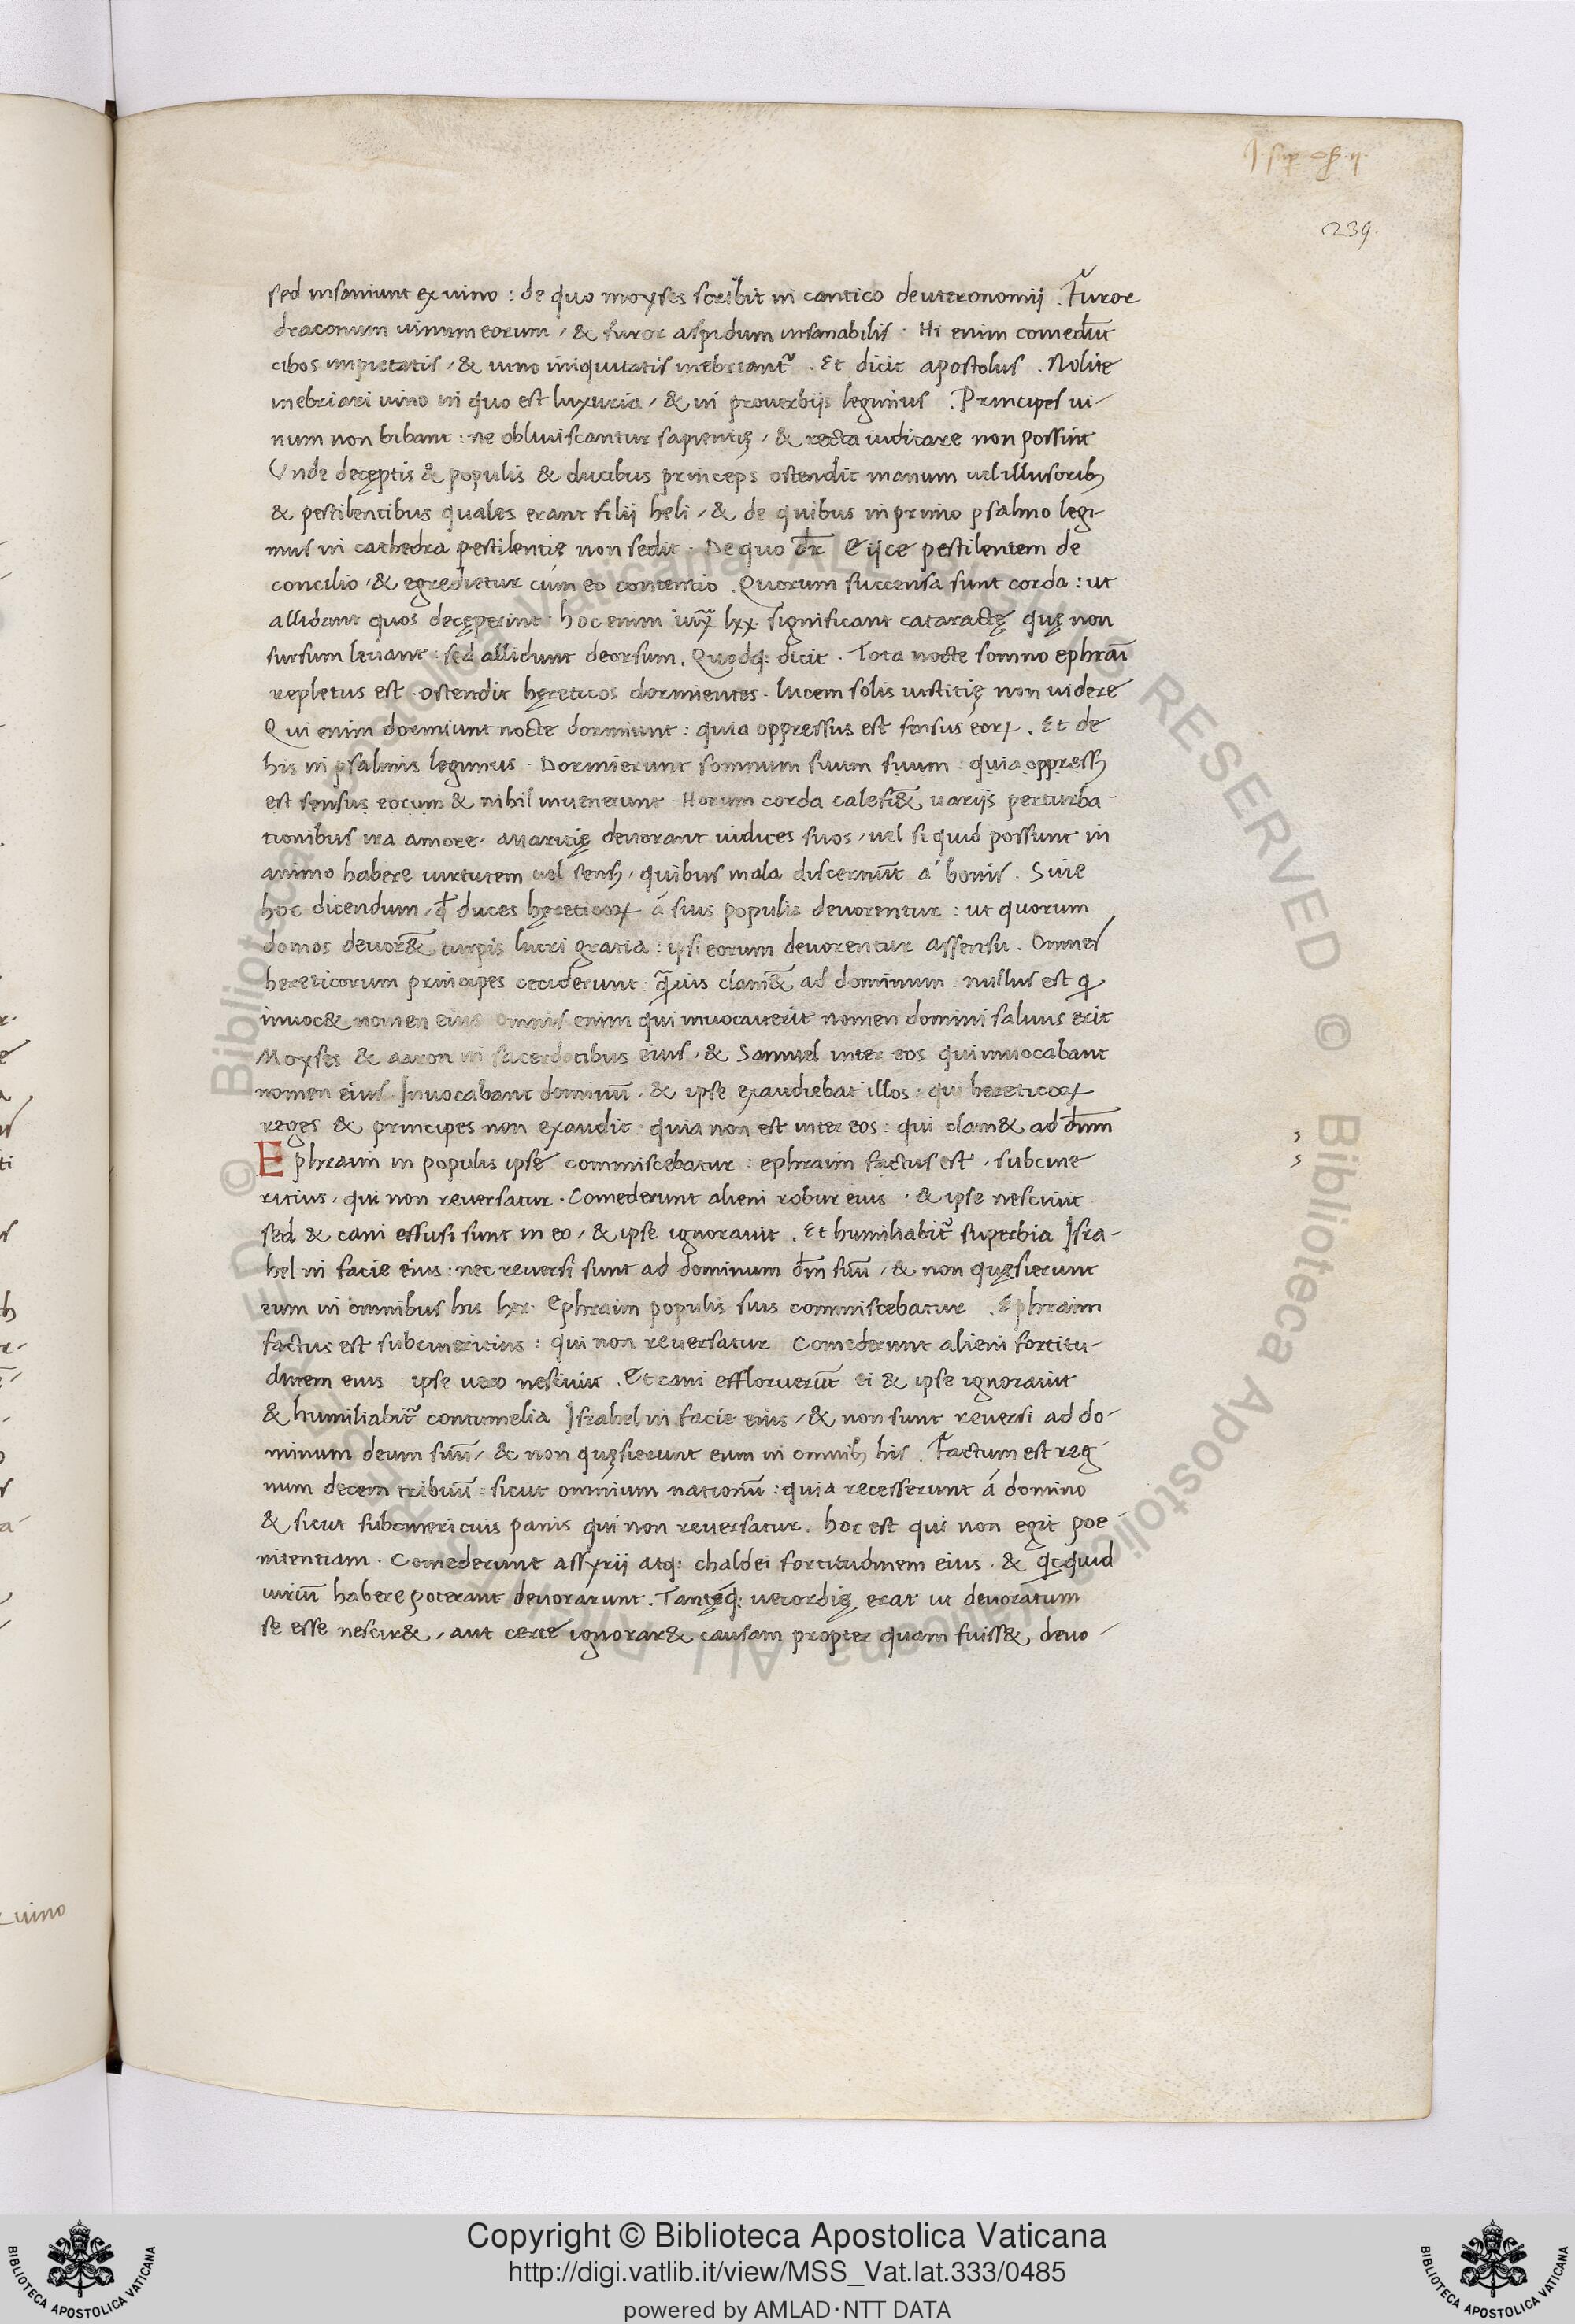 239.
sed insaniunt ex uino : de quo moyses scribit in cantico deuteronomij . Furor
draconum uinum eorum / & furor aspidum insanabilis · Hi enim comedūt
cibos impietatis / & uino iniquitatis inebriant᷑ . Et dicit apostolus . Nolite
inebriari uino in quo est luxuria / & in proverbijs legimus . Principes ui-
num non bibant : ne obliuiscantur sapientię / & recta iudicare non possint
Unde decęptis & populis & ducibus princeps ostendit manum uel illusorib;
& pestilentibus quales erant filij heli / & de quibus in primo psalmo legi-
mus in cathedra pestilentię non sedit · De quo dr̄ Eijce pestilentem de
concilio / & egredietur cúm eo contentio . Quorum succensa sunt corda : ut
allidant quos decęperint · hoc enim iux̄ lxx. significant cataractę quę non
sursum leuant : sed allidunt deorsum . Quodq; dicit . Tota nocte somno ephraī
repletus est · ostendit hęreticos dormientes . lucem solis iustitię non uidere
Qui enim dormiunt nocte dormiunt : quia oppressus est sensus eoꝝ . Et de
his in psalmis legimus · Dormierunt somnum suum suum : quia oppress;
est sensus eorum & nihil inuenerunt · Horum corda calefi&̄ uarijs perturba-
tionibus ira amore . auaritię deuorant iudices suos / uel si quid possunt in
animo habere uirtutem uel sens; / quibus mala discernūt á bonis . Siue
hoc dicendum / ꝙ duces hęreticoꝝ á suis populis deuorentur : ut quorum
domos deuor&̄ turpis lucri gratia : ipsi eorum deuorentur assensu . Omnes
hereticorum principes ceciderunt : q̄uis clam&̄ ad dominum . nullus est q
inuoc& nomen eius omnis enim qui inuocauerit nomen domini saluus erit
Moyses & aaron in sacerdotibus eius / & Samuel inter eos qui inuocabant
nomen eius . Inuocabant dominū / & ipse exaudiebat illos : qui hereticoꝝ
reges & principes non exaudit : quia non est inter eos : qui clam& ad dn̄m
Ephraim in populis ipse commiscebatur : ephraim factus est . subcine
ritius / qui non reuersatur . Comederunt alieni robur eius . & ipse nesciuit
sed & cani effusi sunt in eo / & ipse ignorauit . Et humiliabit᷑ superbia Isra-
hel in facie eius : nec reuersi sunt ad dominum dm̄ suū / & non quęsierunt
eum in omnibus his lxx . Ephraim populis suis commiscebatur . Ephraim
factus est subcineritius : qui non reuersatur Comederunt alieni fortitu-
dinem eius . ipse uero nesciuit . Et cani effloruerūt ei & ipse ignorauit
& humiliabit᷑ contumelia Israhel in facie eius / & non sunt reuersi ad do-
minum deum suū / & non quęsierunt eum in omnib; his . Factum est reg-
num decem tribuū : sicut omnium nationū : quia recesserunt á domino
& sicut subcinericuis panis qui non reuersatur . hoc est qui non egit poe-
nitentiam . Comederunt assyrij atq; chaldei fortitudinem eius . & qcquid
uiriū habere poterant deuorarunt . Tantęq; uecordię erat ut deuoratum
se esse nescir& / aut certe ignorar& causam propter quam fuiss& deuo-
uino
Copyright © Biblioteca Apostolica Vaticana
http://digi.vatlib.it/view/MSS_Vat.lat.333/0485
powered by AMLAD·NTT DATA